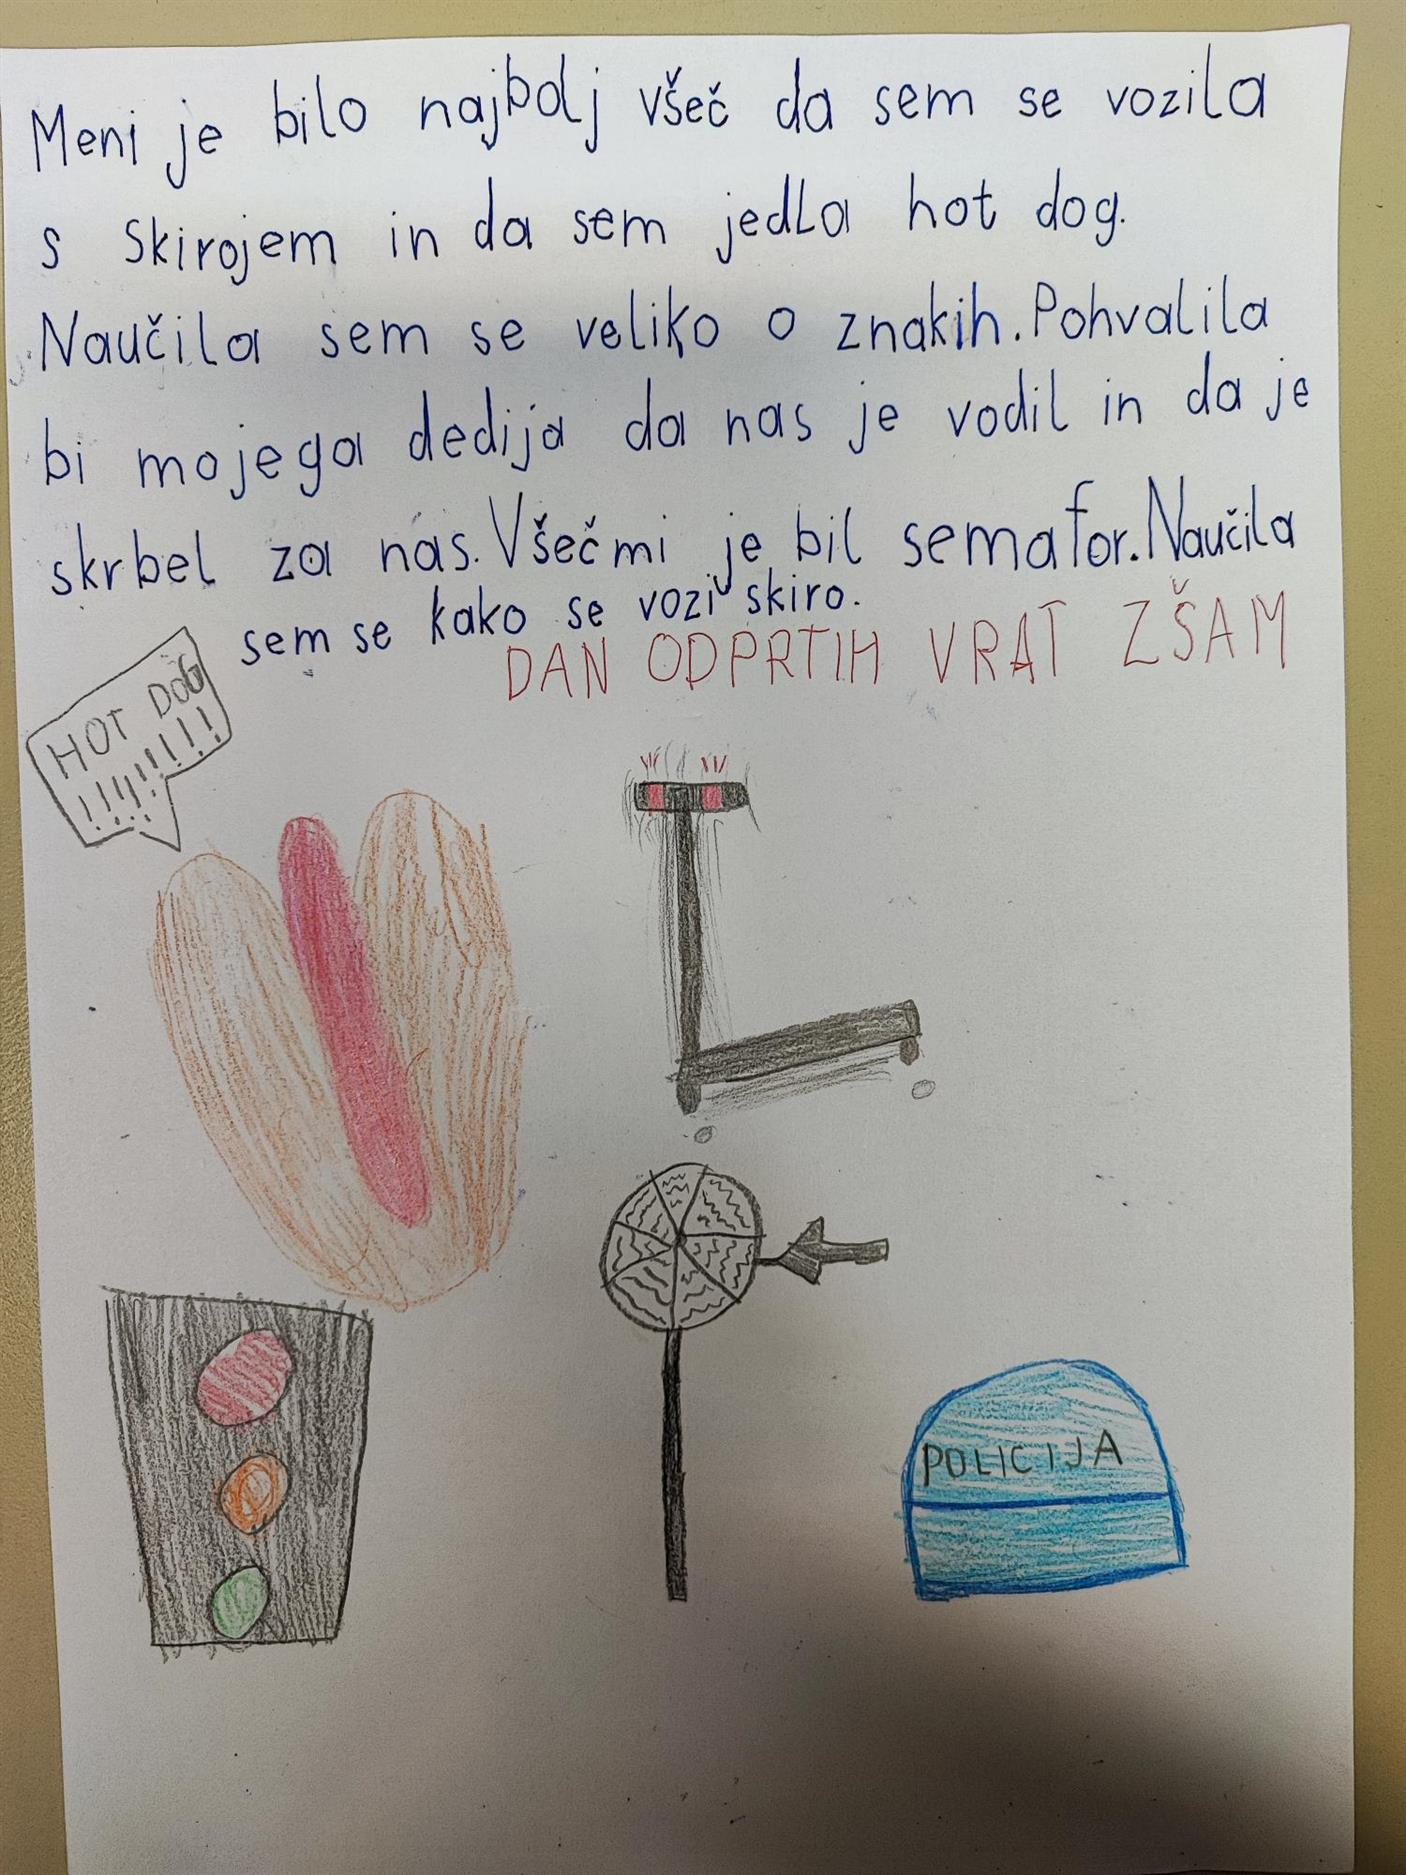 Meni je bilo najbolj všeč da sem se vozila
s skirojem in da sem jedla hot dog.
Naučila sem se veliko o znakih. Pohvalila
bi mojega dedija da nas je vodil in da je
skrbel za nas. Všeč mi je bil semafor. Naučila
sem se kako se vozi skiro.
DAN ODPRTIH VRAT ZŠAM
HOT DOG
!!!!!!!!!
POLICIJA